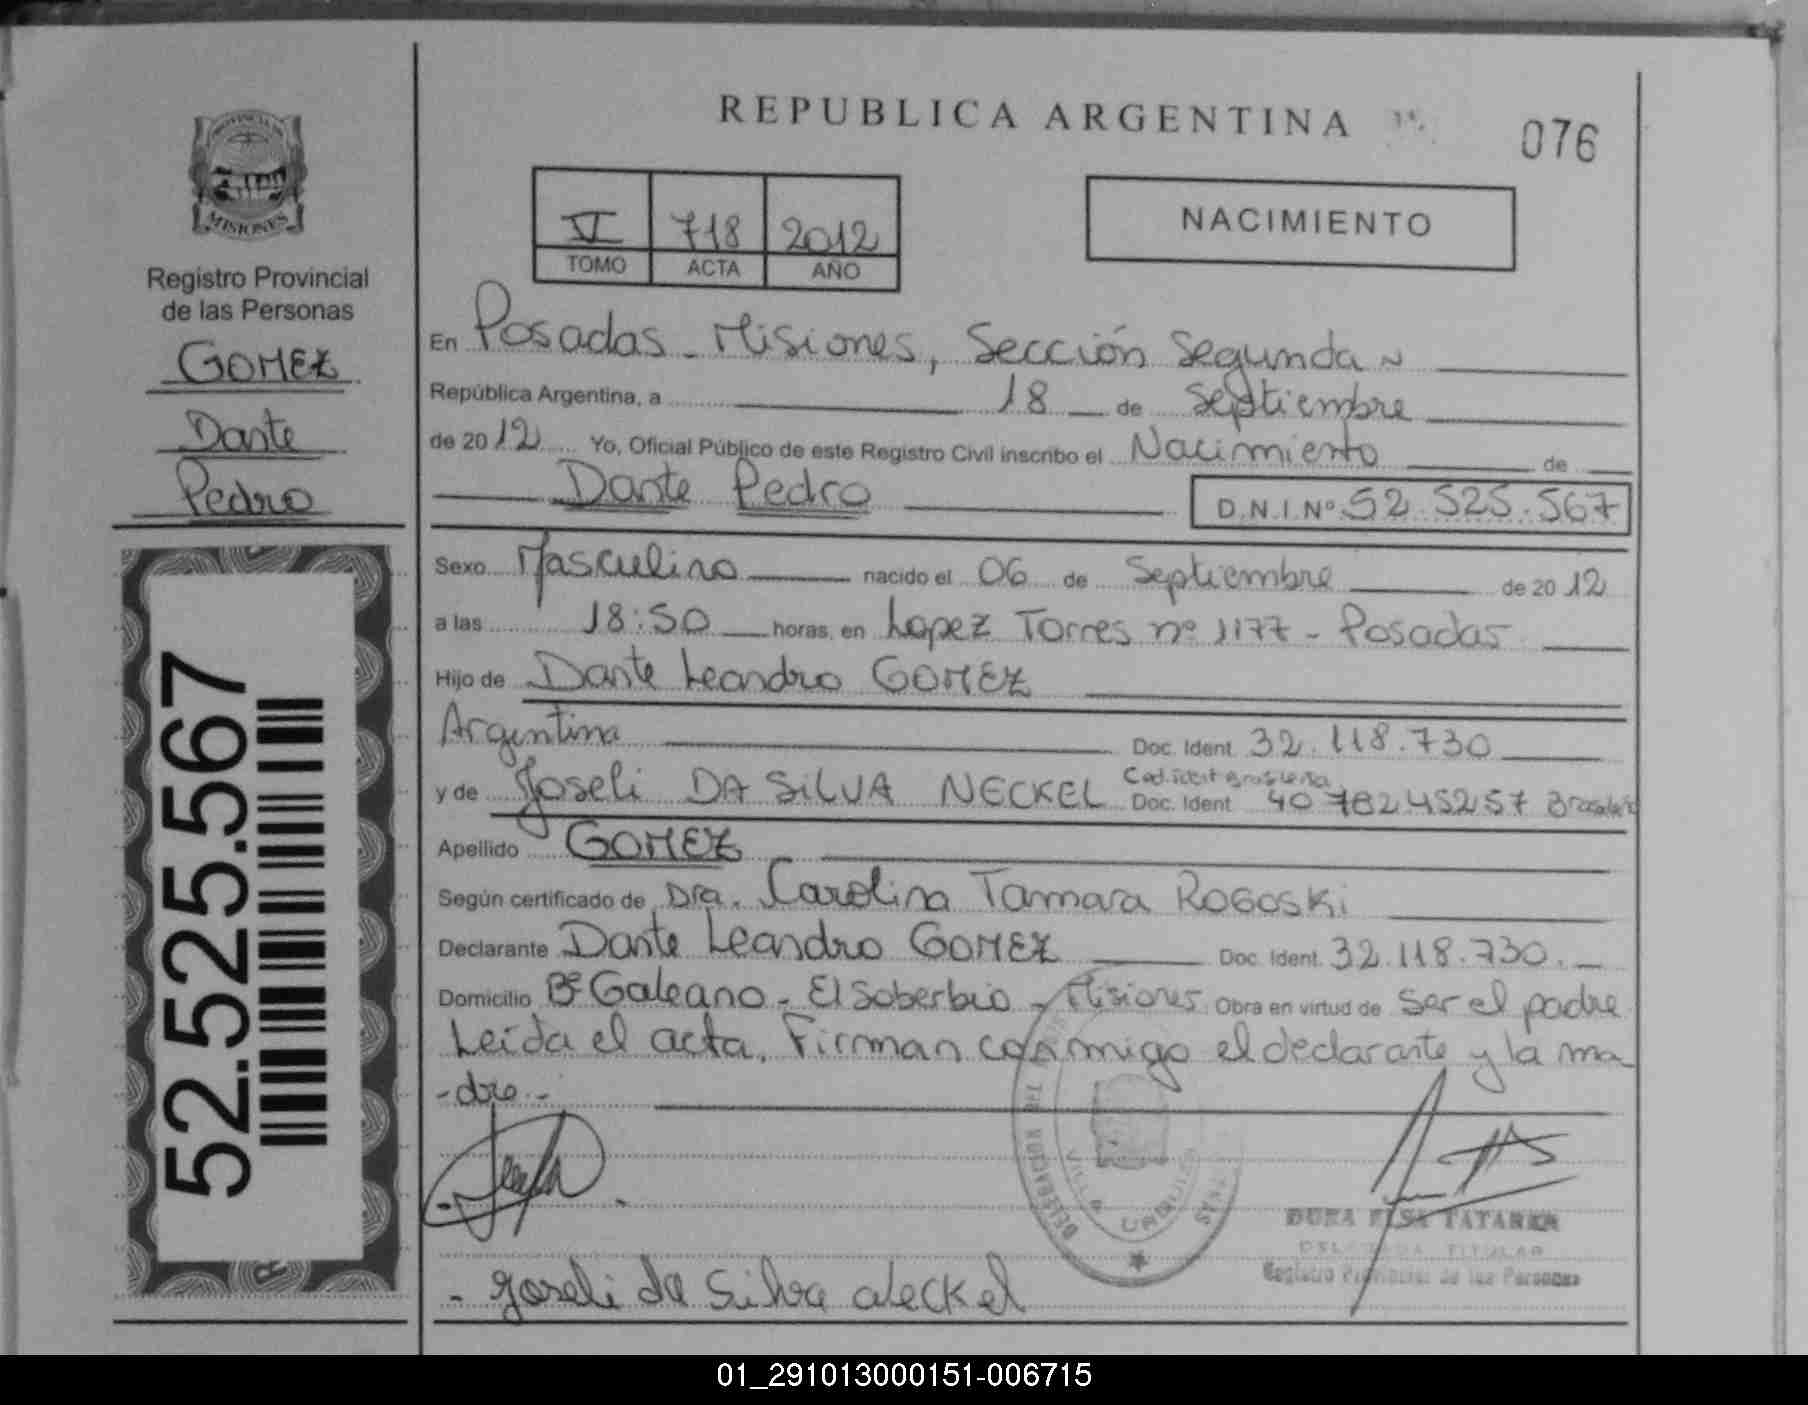 REPUBLICA ARGENTINA
076
PROVINCIA DE
MISIONES
Registro Provincial
de las Personas
GOMEZ
Dante
Pedro
52.525.567
VI 718 2012
TOMO ACTA AÑO
NACIMIENTO
En Posadas - Misiones, Sección Segunda
República Argentina, a 18 de Septiembre
de 2012 Yo, Oficial Público de este Registro Civil inscribo el Nacimiento de
Dante Pedro D.N.I.Nº 52.525.567
Sexo Masculino nacido el 06 de Septiembre de 2012
a las 18:50 horas, en Lopez Torres nº 1177 - Posadas
Hijo de Dante Leandro GOMEZ
Argentina Doc. Ident. 32.118.730
y de Joseli DA SILVA NECKEL Doc. Ident 40 78245257
Apellido GOMEZ
Según certificado de Dra. Carolina Tamara ROGOSKi
Declarante Dante Leandro GOMEZ Doc. Ident. 32.118.730.
Domicilio Bº Galeano - El Soberbio - Misiones Obra en virtud de ser el padre
Leida el acta. Firman conmigo el declarante y la ma
-dre.-
DELEGACION
VILLA URQUIZA
- Joseli da Silva Neckel
ELSA TATAREN
TITULAR
Registro Provincial de las Personas
01_291013000151-006715